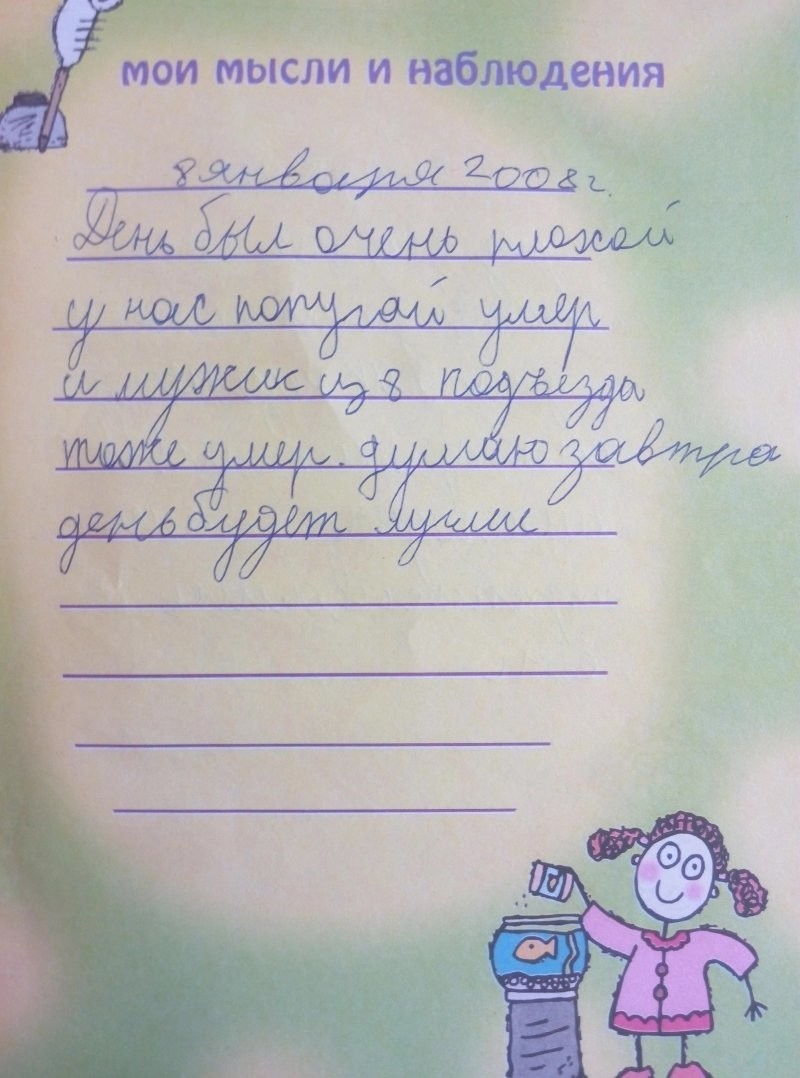 мои мысли и наблюдения
8 января 2008 г.
День был очень плохой
у нас попугай умер
и мужик из 8 подъезда
тоже умер. думаю завтра
день будет лучше